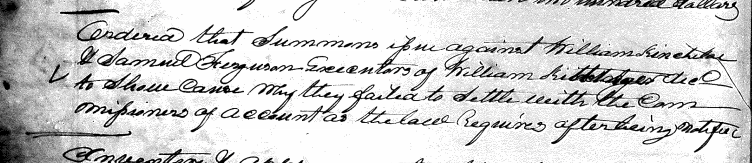 hundred dollars
Ordered that Summons issue against William Kincheloe
& Samuel Ferguson Executors of William decd
to Shew Cause why they failed to Settle with the Com
missioners of account as the law Requires after being notified
Inventory &